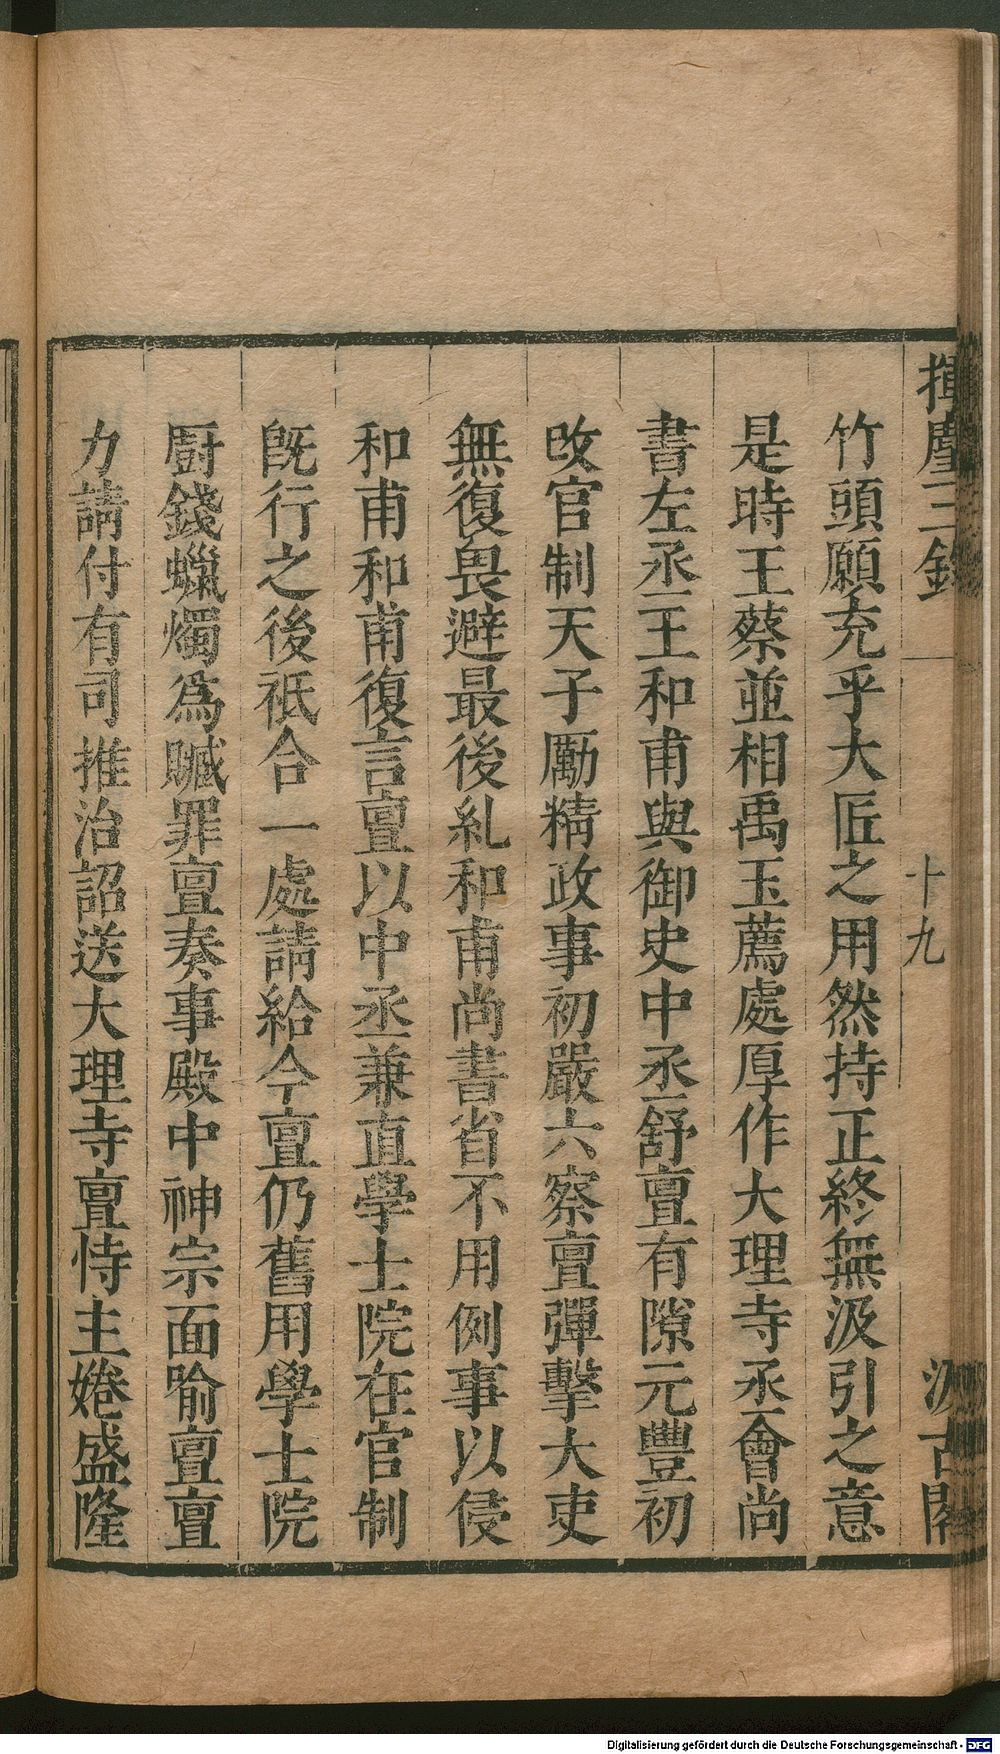 揮麈三錄
十九
汲古閣
竹頭願充乎大匠之用然持正終無汲引之意
是時王蔡並相禹玉薦處厚作大理寺丞會尚
書左丞王和甫與御史中丞舒亶有隙元豐初
改官制天子勵精政事初嚴六察亶彈擊大吏
無復畏避最後糺和甫尚書省不用例事以侵
和甫和甫復言亶以中丞兼直學士院在官制
旣行之後祗合一處請給今亶仍舊用學士院
厨錢蠟燭爲贓罪亶奏事殿中神宗面喻亶亶
力請付有司推治詔送大理寺亶恃主婘盛隆
Digitalisierung gefördert durch die Deutsche Forschungsgemeinschaft - DFG